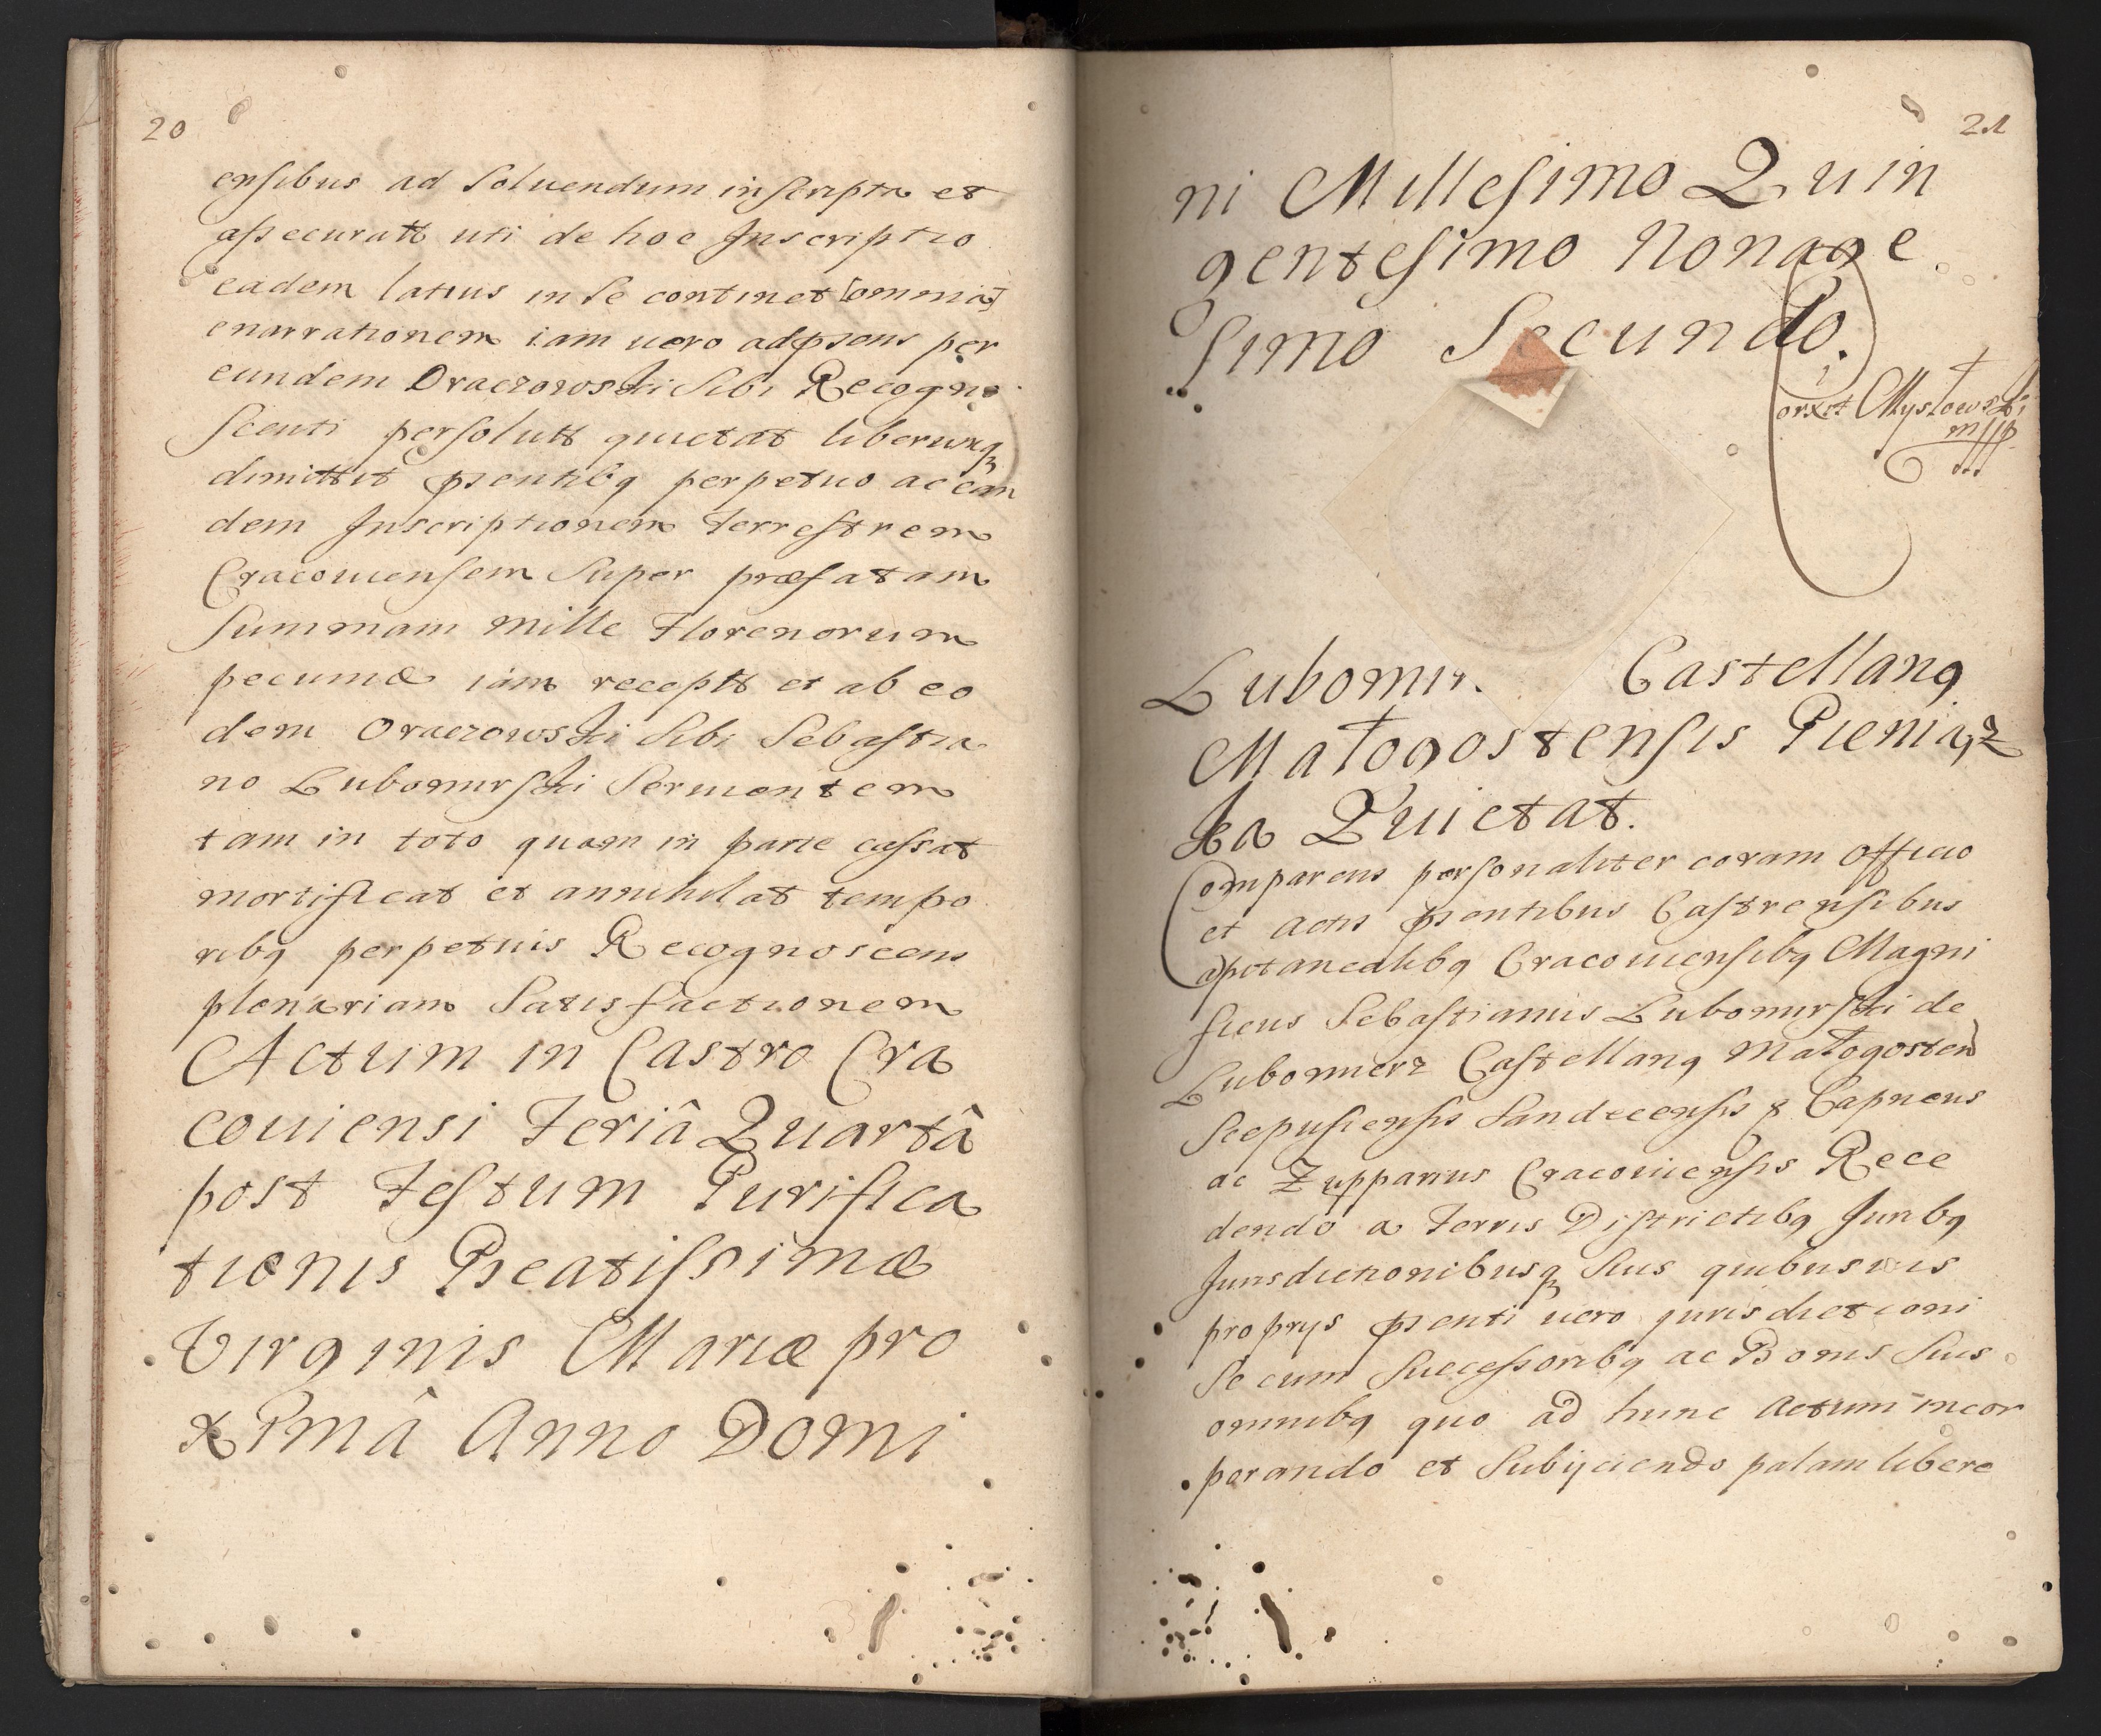 20
ensibus ad Soluendum inscripta et
assecuratt uti de hoc Inscriptio
eadem latius in Se continet [omnia]
enarrationem iam uero adpsens per
eundem Oraczowski Sibi Recogno
Scenti persolutt quietat liberumq
dimittit psentibq perpetuo ac ean
dem Inscriptionem Terrestrem
Cracouiensem Super præfatam
Summam Mille Florenorum
pecuniæ iam receptt et ab eo
dem Oraczowski Sibi Sebastia
no Lubomirski Seruientem
tam in toto quam in parte cassat
mortificat et annihilat tempo
ribq perpetuis Recognoscens
plenariam Satisfactionem
Actum in Castro Cra
couiensi Feriâ Quartâ
post Festum Purifica
tionis Beatissimæ
Virginis Mariæ pro
ximâ Anno Domi
21
ni Millesimo Quin
gentesimo Nonage
simo Secundo.
Mysłowski
mpp
Lubomir. Castellanq
Małogostensis Pieniąz
ka Quietat.
Comparens personaliter coram Officio
et Actis psentibus Castrensibus
Capitanealibq Cracouiensibq Magni
ficus Sebastianus Lubomirski de
Lubomierz Castellanq Małogosten
Scepusiensis Sandecensis & Capneus
ac Zupparius Cracouiensis Rece
dendo a Terris Districtibq Juribq
Jurisdictionibusq Suis quibusuis
proprys psenti uero jurisdictioni
Se cum Successoribq ac Bonis Suis
omnibq quo ad hunc Actum incor
porando et Subijciendo palam libere